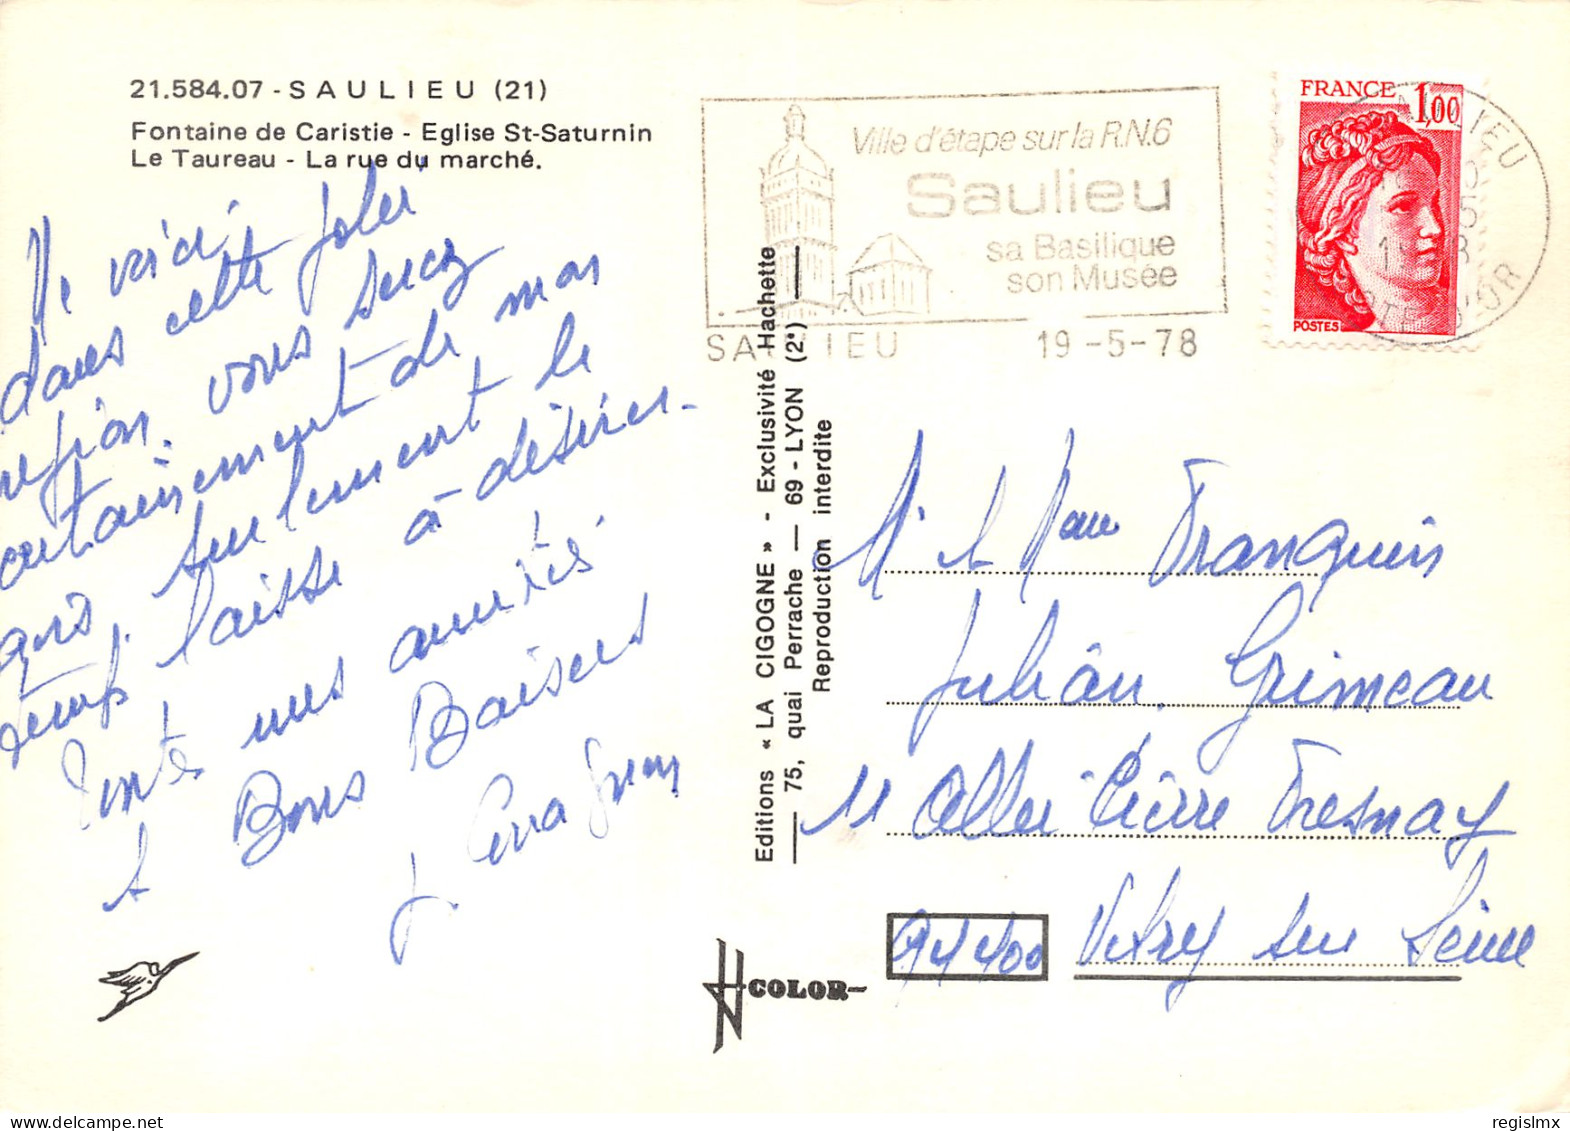 21.584.07 - SAULIEU (21)
Fontaine de Caristie - Eglise St-Saturnin
Le Taureau - La rue du marché.
Me voici
dans cette jolie
region. vous serez
certainement de mon
avis, seulement le
temp. laisse à désirer.
mes amitiés
& Bons Baisers
Editions « LA CIGOGNE » - Exclusivité Hachette
75, quai Perrache — 69 - LYON (2e)
Reproduction interdite
COLOR
Ville d'étape sur la R.N.6
Saulieu
sa Basilique
son Musée
SAULIEU 19-5-78
FRANCE 1,00
POSTES
SAULIEU
COTE D'OR
M. et Mme Franquin
Julian Grimeau
11 Allée Pierre Fresnay
94400 Vitry sur Seine
regislmx